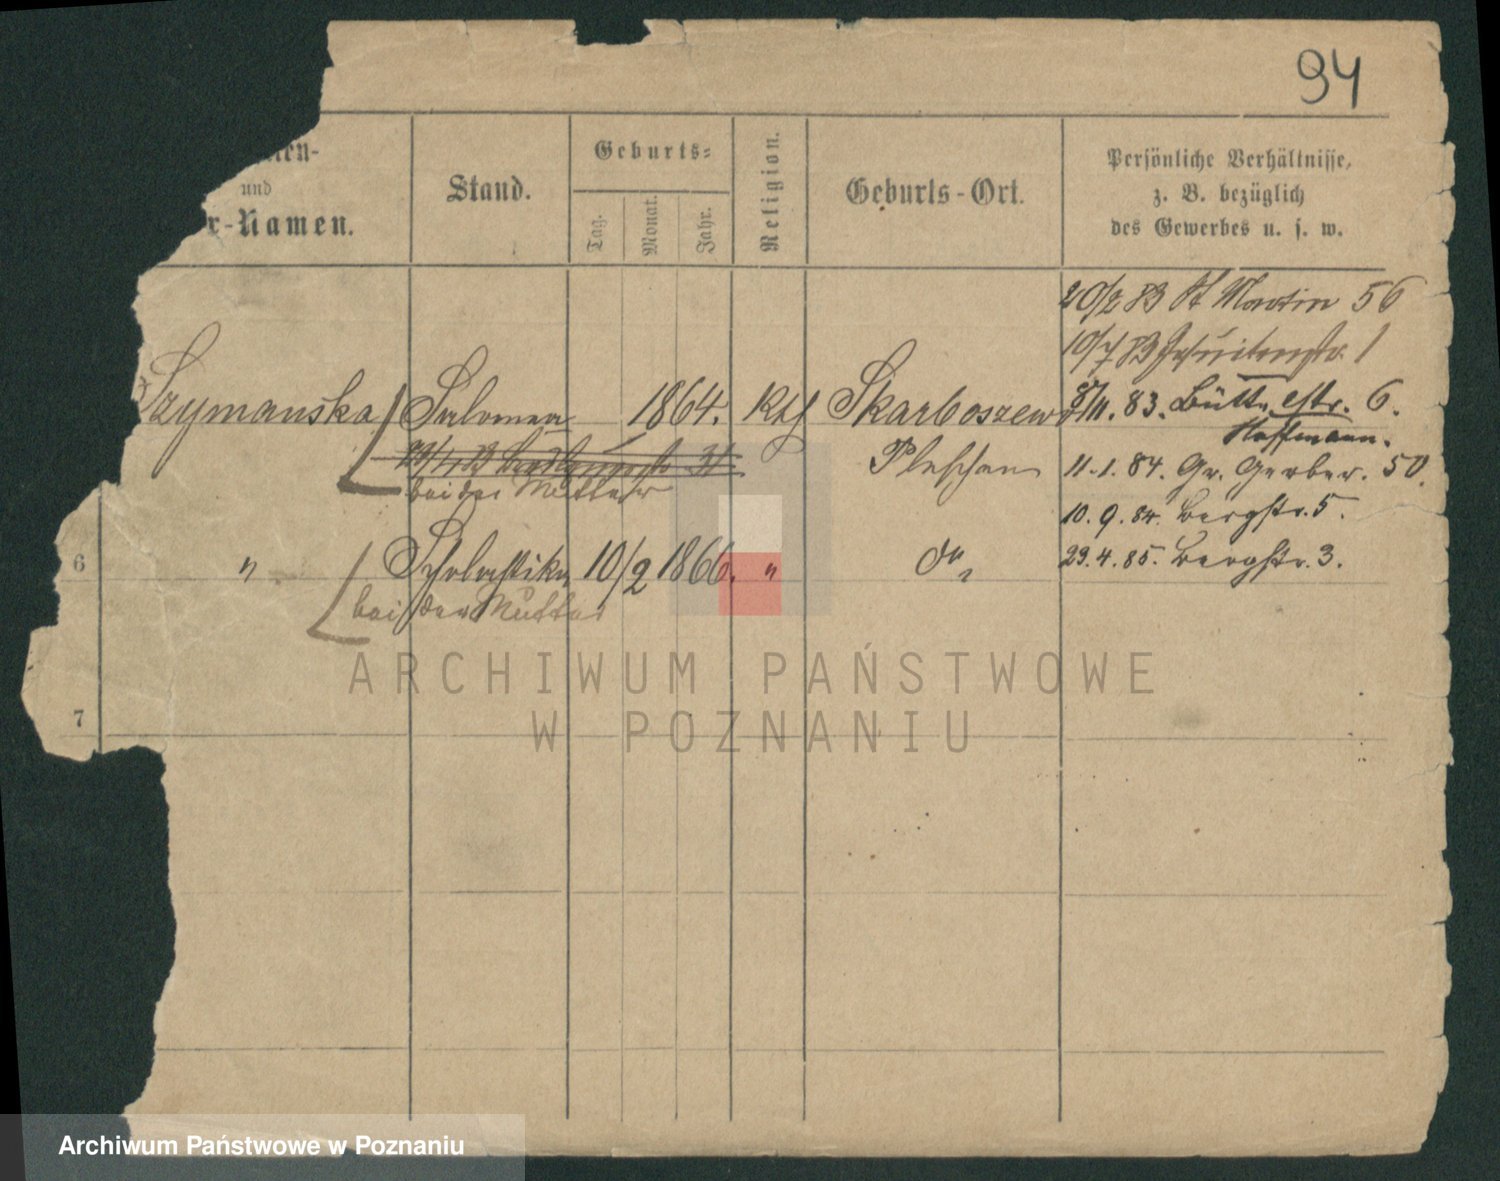 94
und
r-Namen.
Stand.
Geburts-
Tag.
Monat.
Jahr.
Religion.
Geburts-Ort.
Persönliche Verhältnisse,
z. B. bezüglich
des Gewerbes u. s. w.
20/2 83 St Martin 56
10/7 83 Jesuitenstr. 1
Szymanska Salomea 1864. Kth Skarboszewo
8/11. 83. Büttelstr. 6.
Hoffmann.
31
Pleschen
11.1.84. Gr. Gerber. 50.
bei der Mutter
10.9.84. Bergstr. 5.
6 " Scholastika 10/2 1866. " do
29.4.85. Bergstr. 3.
bei der Mutter
7
ARCHIWUM PAŃSTWOWE
W POZNANIU
Archiwum Państwowe w Poznaniu